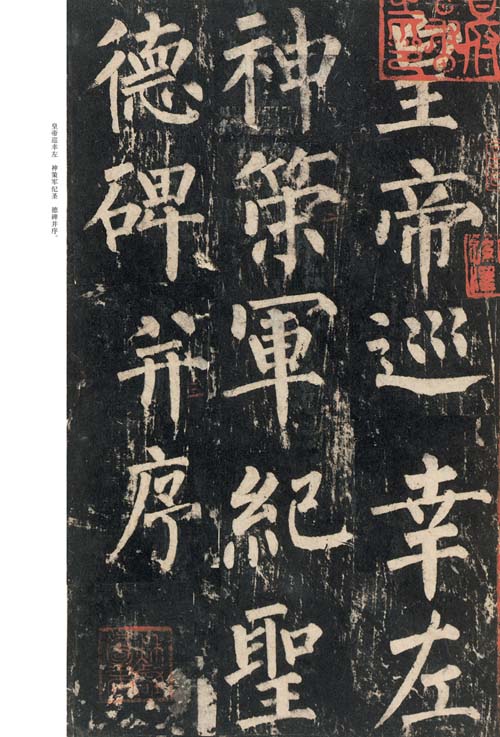 皇帝巡幸左
神策軍紀聖
德碑并序
皇帝巡幸左　神策军纪圣　德碑并序。